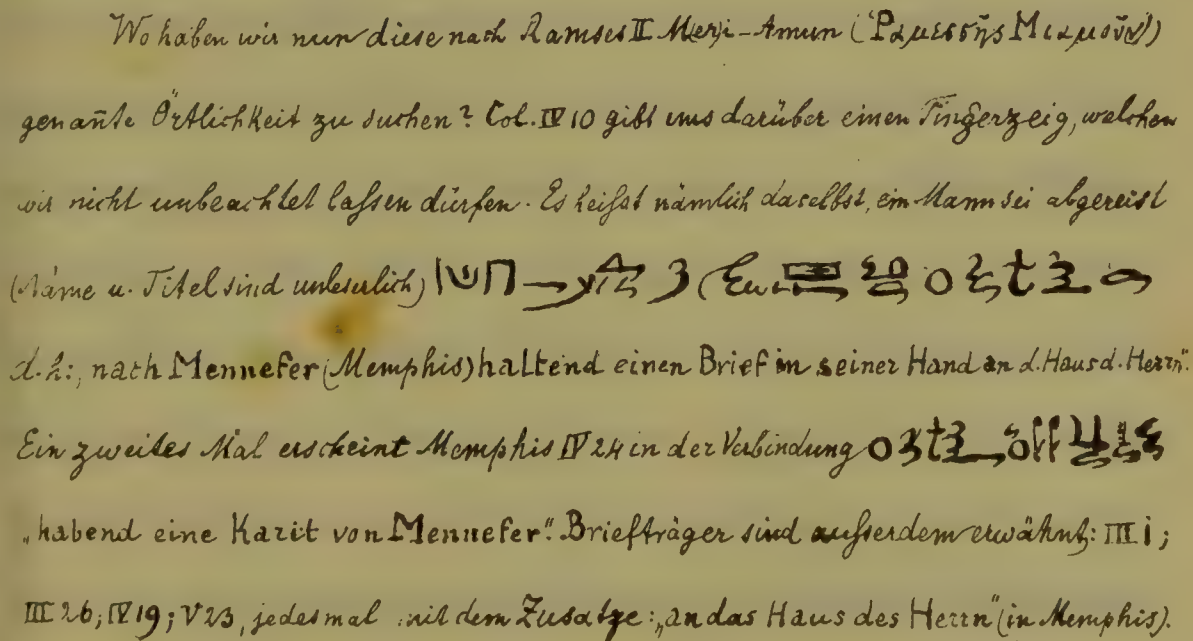 Wo haben wir nun diese nach Ramses II Merji-Amun (Ῥαμεσσῆς Μιαμοῦν)
genan̄te Örtlichkeit zu suchen? Col. IV 10 gibt uns darüber einen Fingerzeig, welchen
wir nicht unbeachtet laſsen dürfen. Es heiſst nämlich daselbst, ein Mann sei abgereist
(Name u. Titel sind unleserlich)
d. h.: „nach Mennefer (Memphis) haltend einen Brief in seiner Hand an d. Haus d. Herrn".
Ein zweites Mal erscheint Memphis IV 24 in der Verbindung
„habend eine Karit von Mennefer". Briefträger sind auſserdem erwähnt: III 1;
III 26; IV 19; V 23, jedesmal mit dem Zusatze: „an das Haus des Herrn" (in Memphis).